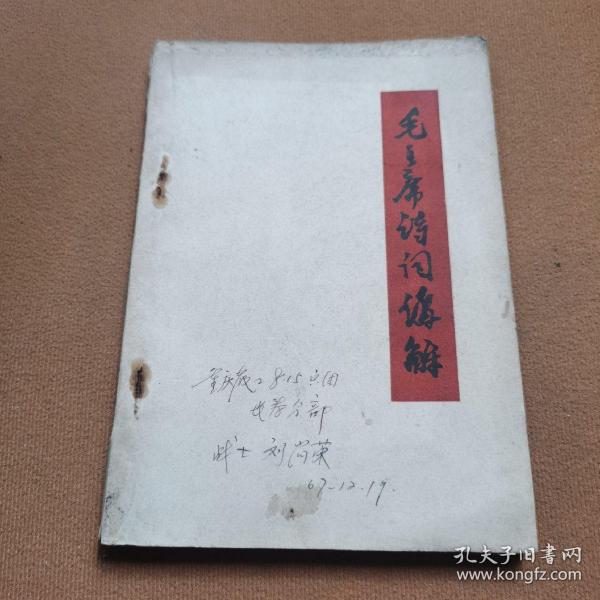 毛主席诗词讲解
重庆茂工8·15兵团
电算分部
战士 刘尚荣
67-12-19.
孔夫子旧书网
www.kongfz.com